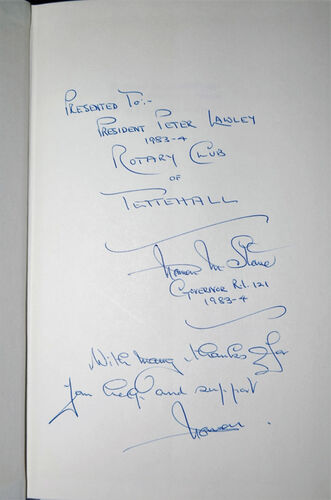 PRESENTED TO:-
PRESIDENT PETER LAWLEY
1983-4
ROTARY CLUB
OF
TETTEHALL
GOVERNOR R.I. 121
1983-4
With many thanks for
your help and support